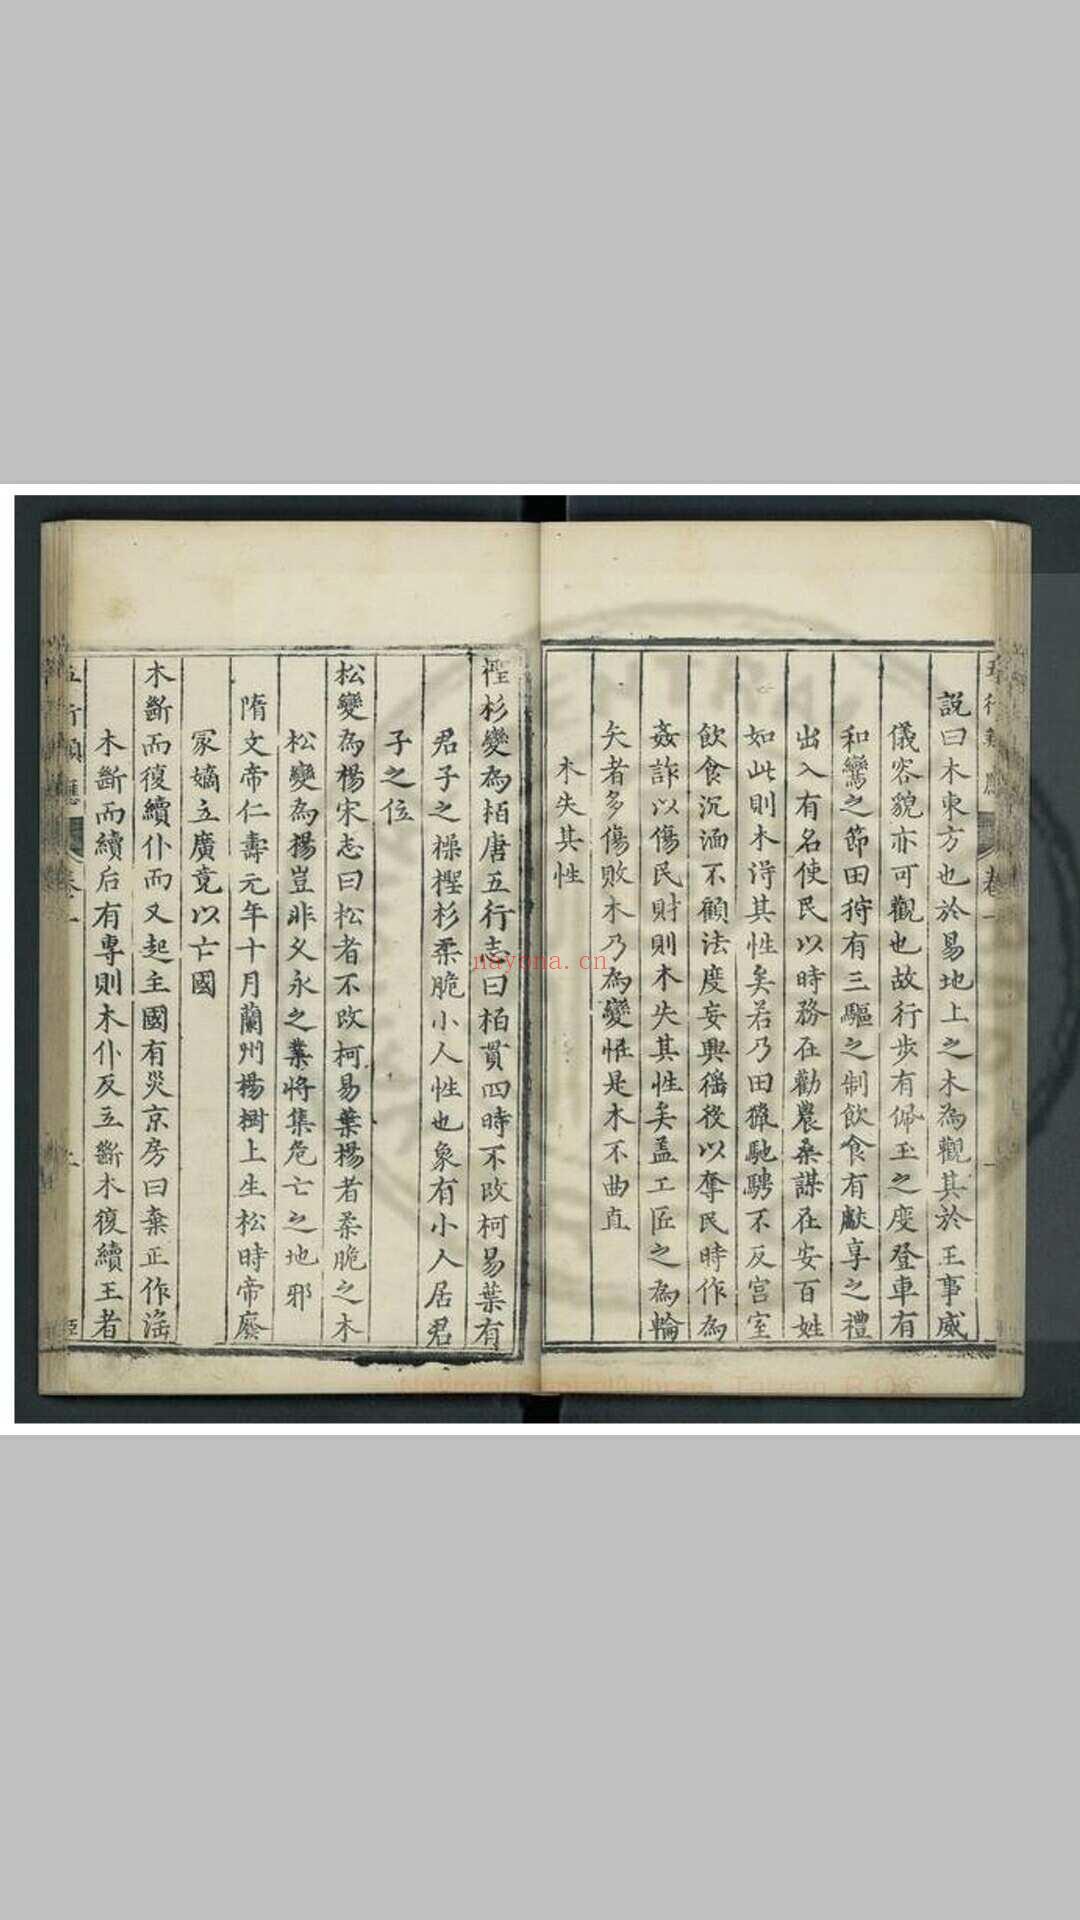 說曰木東方也於易地上之木為觀其於王事威
儀容貌亦可觀也故行步有佩玉之度登車有
和鸞之節田狩有三驅之制飲食有獻享之禮
出入有名使民以時務在勸農桑謀在安百姓
如此則木得其性矣若乃田獵馳騁不反宮室
飲食沉湎不顧法度妄興徭役以奪民時作為
姦詐以傷民財則木失其性矣盖工匠之為輪
矢者多傷敗木乃為變恠是木不曲直
木失其性
檉杉變為栢唐五行志曰栢貫四時不改柯易葉有
君子之操檉杉柔脆小人性也象有小人居君
子之位
松變為楊宋志曰松者不改柯易葉楊者柔脆之木
松變為楊豈非乂永之業將集危亡之地邪
隋文帝仁壽元年十月蘭州楊樹上生松時帝廢
冢嫡立廣竟以亡國
木斷而復續仆而又起主國有災京房曰棄正作淫
木斷而續后有專則木仆反立斷木復續王者
nayona.cn